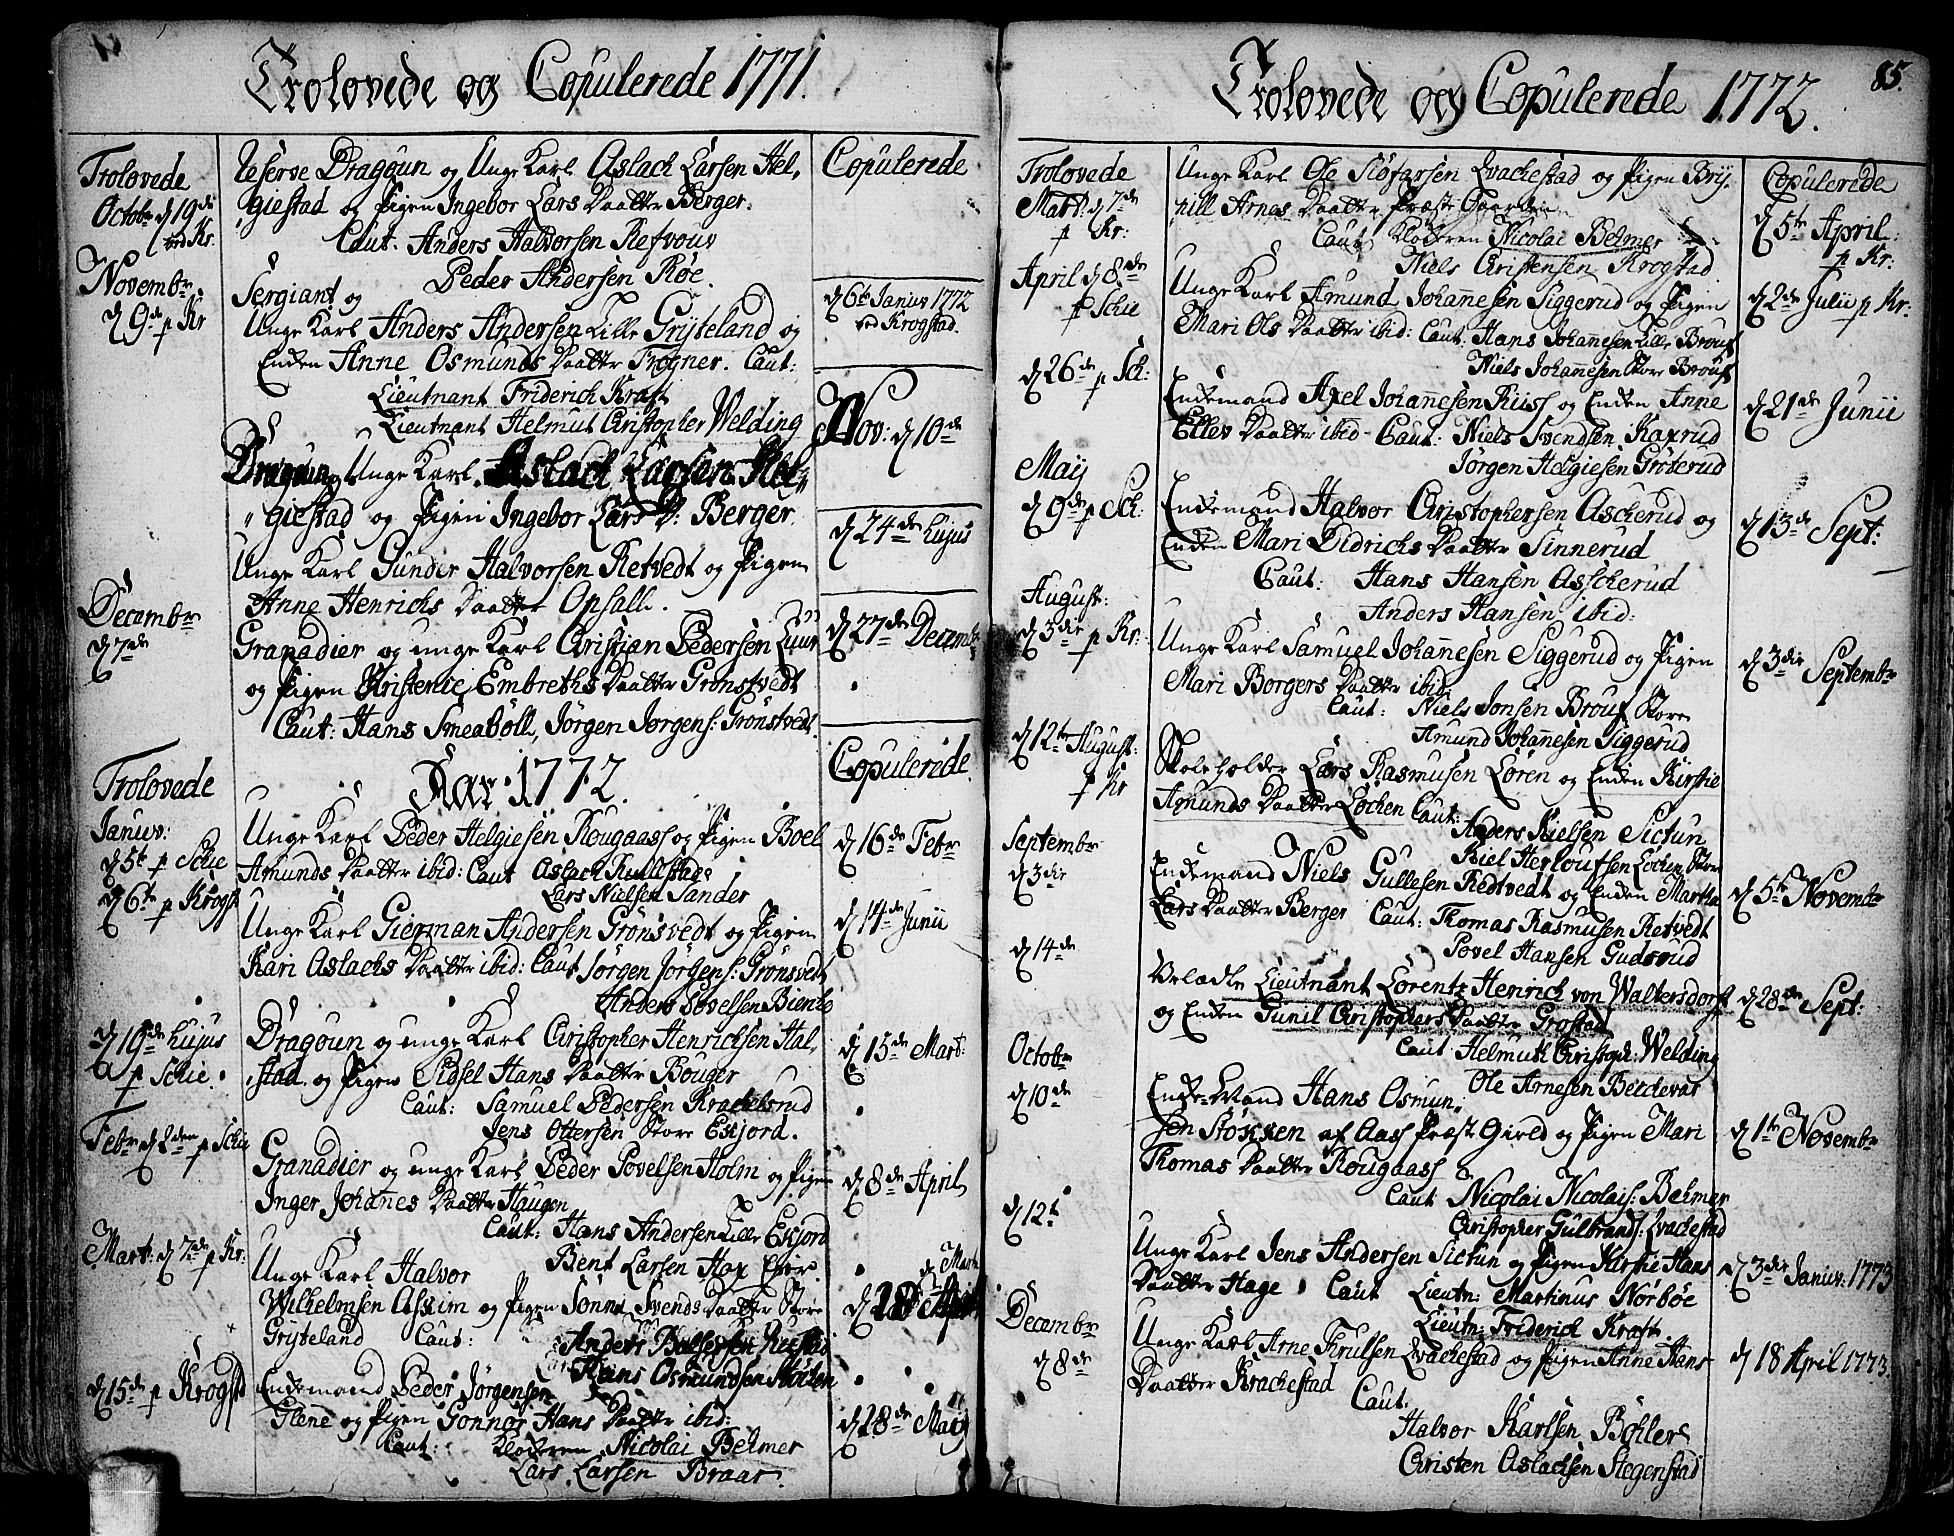 Trolovede og Copulerede 1771.
Trolovede
Octobr d 19de
ved Kr.
Reserve Dragoun og Unge Karl Aslach Larsen Hel,
giestad og Pigen Ingebor Lars Daatter Berger.
Caut. Anders Halvorsen Refvouv
Peder Andersen Røe.
Copulerede
Novembr.
d 9de p Kr
Sergiant og
Unge Karl Anders Andersen Lille Grÿteland og
Enken Anne Osmunds Daatter Frogner. Caut:
Lieutnant Friderich Kraft
Lieutnant Helmut Christopher Welding
d 6te Janius 1772
ved Krogstad.
Dragoun, Unge Karl. Aslach Larsen Hel,
giestad og Pigen Ingebor Lars D: Berger.
Nov: d 10de
Unge Karl Gunder Halvorsen Retvedt og Pigen
Anne Henrichs Daatter Opsall.
d 24de hujus
Decembr
d 7de
Granadier og unge Karl Christian Pedersen Luur
og Pigen Kristenie Embreths Daatter Grønstvedt
Caut: Hans Smeabøll, Jørgen Jørgens: Grønstvedt.
d 27de Decembr
Trolovede
Aar 1772.
Copulerede.
Januv:
d 5te p Schie
Unge Karl Peder Helgiesen Rougaass og Pigen Boel
Amunds Daatter ibid: Caut Aslach Kullestad
Lars Nielsen Sander
d 16de Febr
d 6te p Krogst
Unge Karl Gierman Andersen Grønsvedt og Pigen
Kari Aslachs Daatter ibid: Caut Jørgen Jørgens: Grønsvedt
Anders Povelsen Bienke
d 14de Junii
d 19de hujus
p Schie.
Dragoun og unge Karl Christopher Henrichsen Hal,
stad og Pigen Sidsel Hans Daatter Bouger
Caut: Samuel Pedersen Krachelsrud
Jens Ottersen Store Eskjord.
d 15de Mart:
Febr d 2den p Schie
Granadier og unge Karl Peder Povelsen Holm og Pigen
Inger Johanes Daatter Haugen
Caut: Hans Andersen Lille Eskjord
Bent Larsen Hax Eier.
d 8de April
Mart: d 7de p Kr:
Unge Karl Halvor
Wilhelmsen Askim og Pigen Sønni Svends Daatter Store
Grÿteland Caut: Anders Balsersen
Hans Osmundsen Støkken
d 15de p Krogst
Enkemand Peder Jørgensen
Glene og Pigen Gonnor Hans Daatter ibid:
Caut: Klokkeren Nicolai Behmer
Lars Larsen Braar.
d 28de Maij
85.
Trolovede og Copulerede 1772.
Trolovede
Mart: d 7de
p Kr:
Unge Karl Ole Siøfarsen Kvachestad og Pigen Brÿ,
nill Arnes Daatter Præste Gaarden
Caut Klokkeren Nicolai Behmer
Niels Christensen Krogstad
Copulerede
d 5te April:
p Kr:
April d 8de
p Schie
Unge Karl Amund Johanesen Siggerud og Pigen
Mari Ols Daatter ibid: Caut. Hans Johanesen Lille Brouf
Niels Johanesen Store Brouf
d 2de Julii p Kr:
d 26de p Sch:
Enkemand Axel Johanesen Riiss og Enken Anne
Ellev Daatter ibid Caut: Niels Svendsen Kaxrud
Jørgen Helgiesen Grøterud
d 21de Junii
Maij
d 9de p Sch:
Enkemand Halvor Christophersen Ascherud og
Enken Mari Didrichs Daatter Sinnerud
Caut: Hans Hansen Asscherud
Anders Hansen ibid:
d 13de Sept:
August:
d 3die p Kr:
Unge Karl Samuel Johanesen Siggerud og Pigen
Mari Borgers Daatter ibid.
Caut: Niels Jonsen Brouf Store
Amund Johanesen Siggerud
d 3die Septembr
d 12te August:
p Kr
Skoleholder Lars Rasmusen Løren og Enken Kirstie
Amunds Daatter Løchen Caut:
Anders Nielsen Sictun
Kiel Herloufsen Løchen Store
Septembr
d 3die
Enkemand Niels Gullesen Redtvedt og Enken Martha
Lars Daatter Berger Caut: Thomas Rasmusen Retvedt
Povel Hansen Gudsrud
d 5te Novembr
d 14de
Velædle Lieutnant Lorentz Henrich von Waltersdorf
og Enken Gunil Christophers Daatter Grostad
Caut Helmuth Christoph: Welding
Ole Arnesen Berdevar
d 28de Sept:
Octobr
d 10de
Enke-Mand Hans Osmun,
sen Støkken af Aass Præste Gield og Pigen Mari
Thomas Daatter Rougaass
Caut Nicolai Nicolais: Behmer
Christopher Gulbrands: Kvachestad
d 1te Novembr
d 12te
Unge Karl Jens Andersen Sictun og Pigen Kirstie Hans
Daatter Hage Caut Lieutn: Martinus Nørbøe
Lieutn: Friderich Kraft.
d 3die Januv: 1773
Decembr
d 8de
Unge Karl Arne Thrulsen Kvachestad og Pigen Anne Hans
Daatter Krachestad
Caut:
Halvor Karlsen Böhler
Christen Aslachsen Stegenstad
d 18 April 1773.